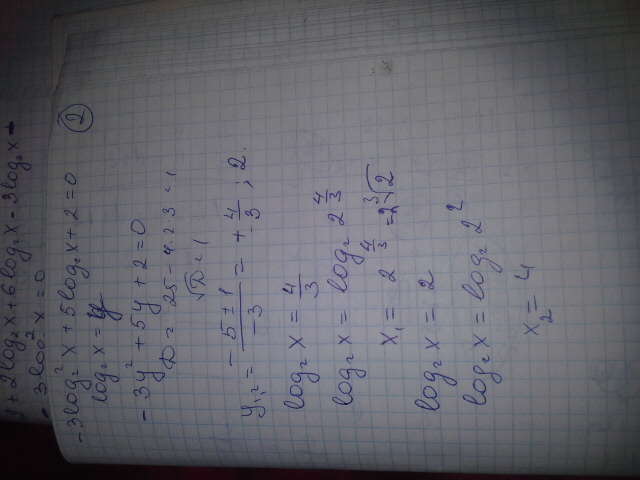 y + 2log₂x + 6log₂x - 3log₂x -
- 3log₂²x = 0
②
-3log₂²x + 5log₂x + 2 = 0
log₂x = y
-3y² + 5y + 2 = 0
D = 25 - 4·2·3 = 1
√D = 1
y₁,₂ = (-5 ± 1)/(-3) = + 4/3 ; 2.
log₂x = 4/3
log₂x = log₂ 2^(4/3)
x₁ = 2^(4/3) = 2∛2
log₂x = 2
log₂x = log₂ 2²
x₂ = 4